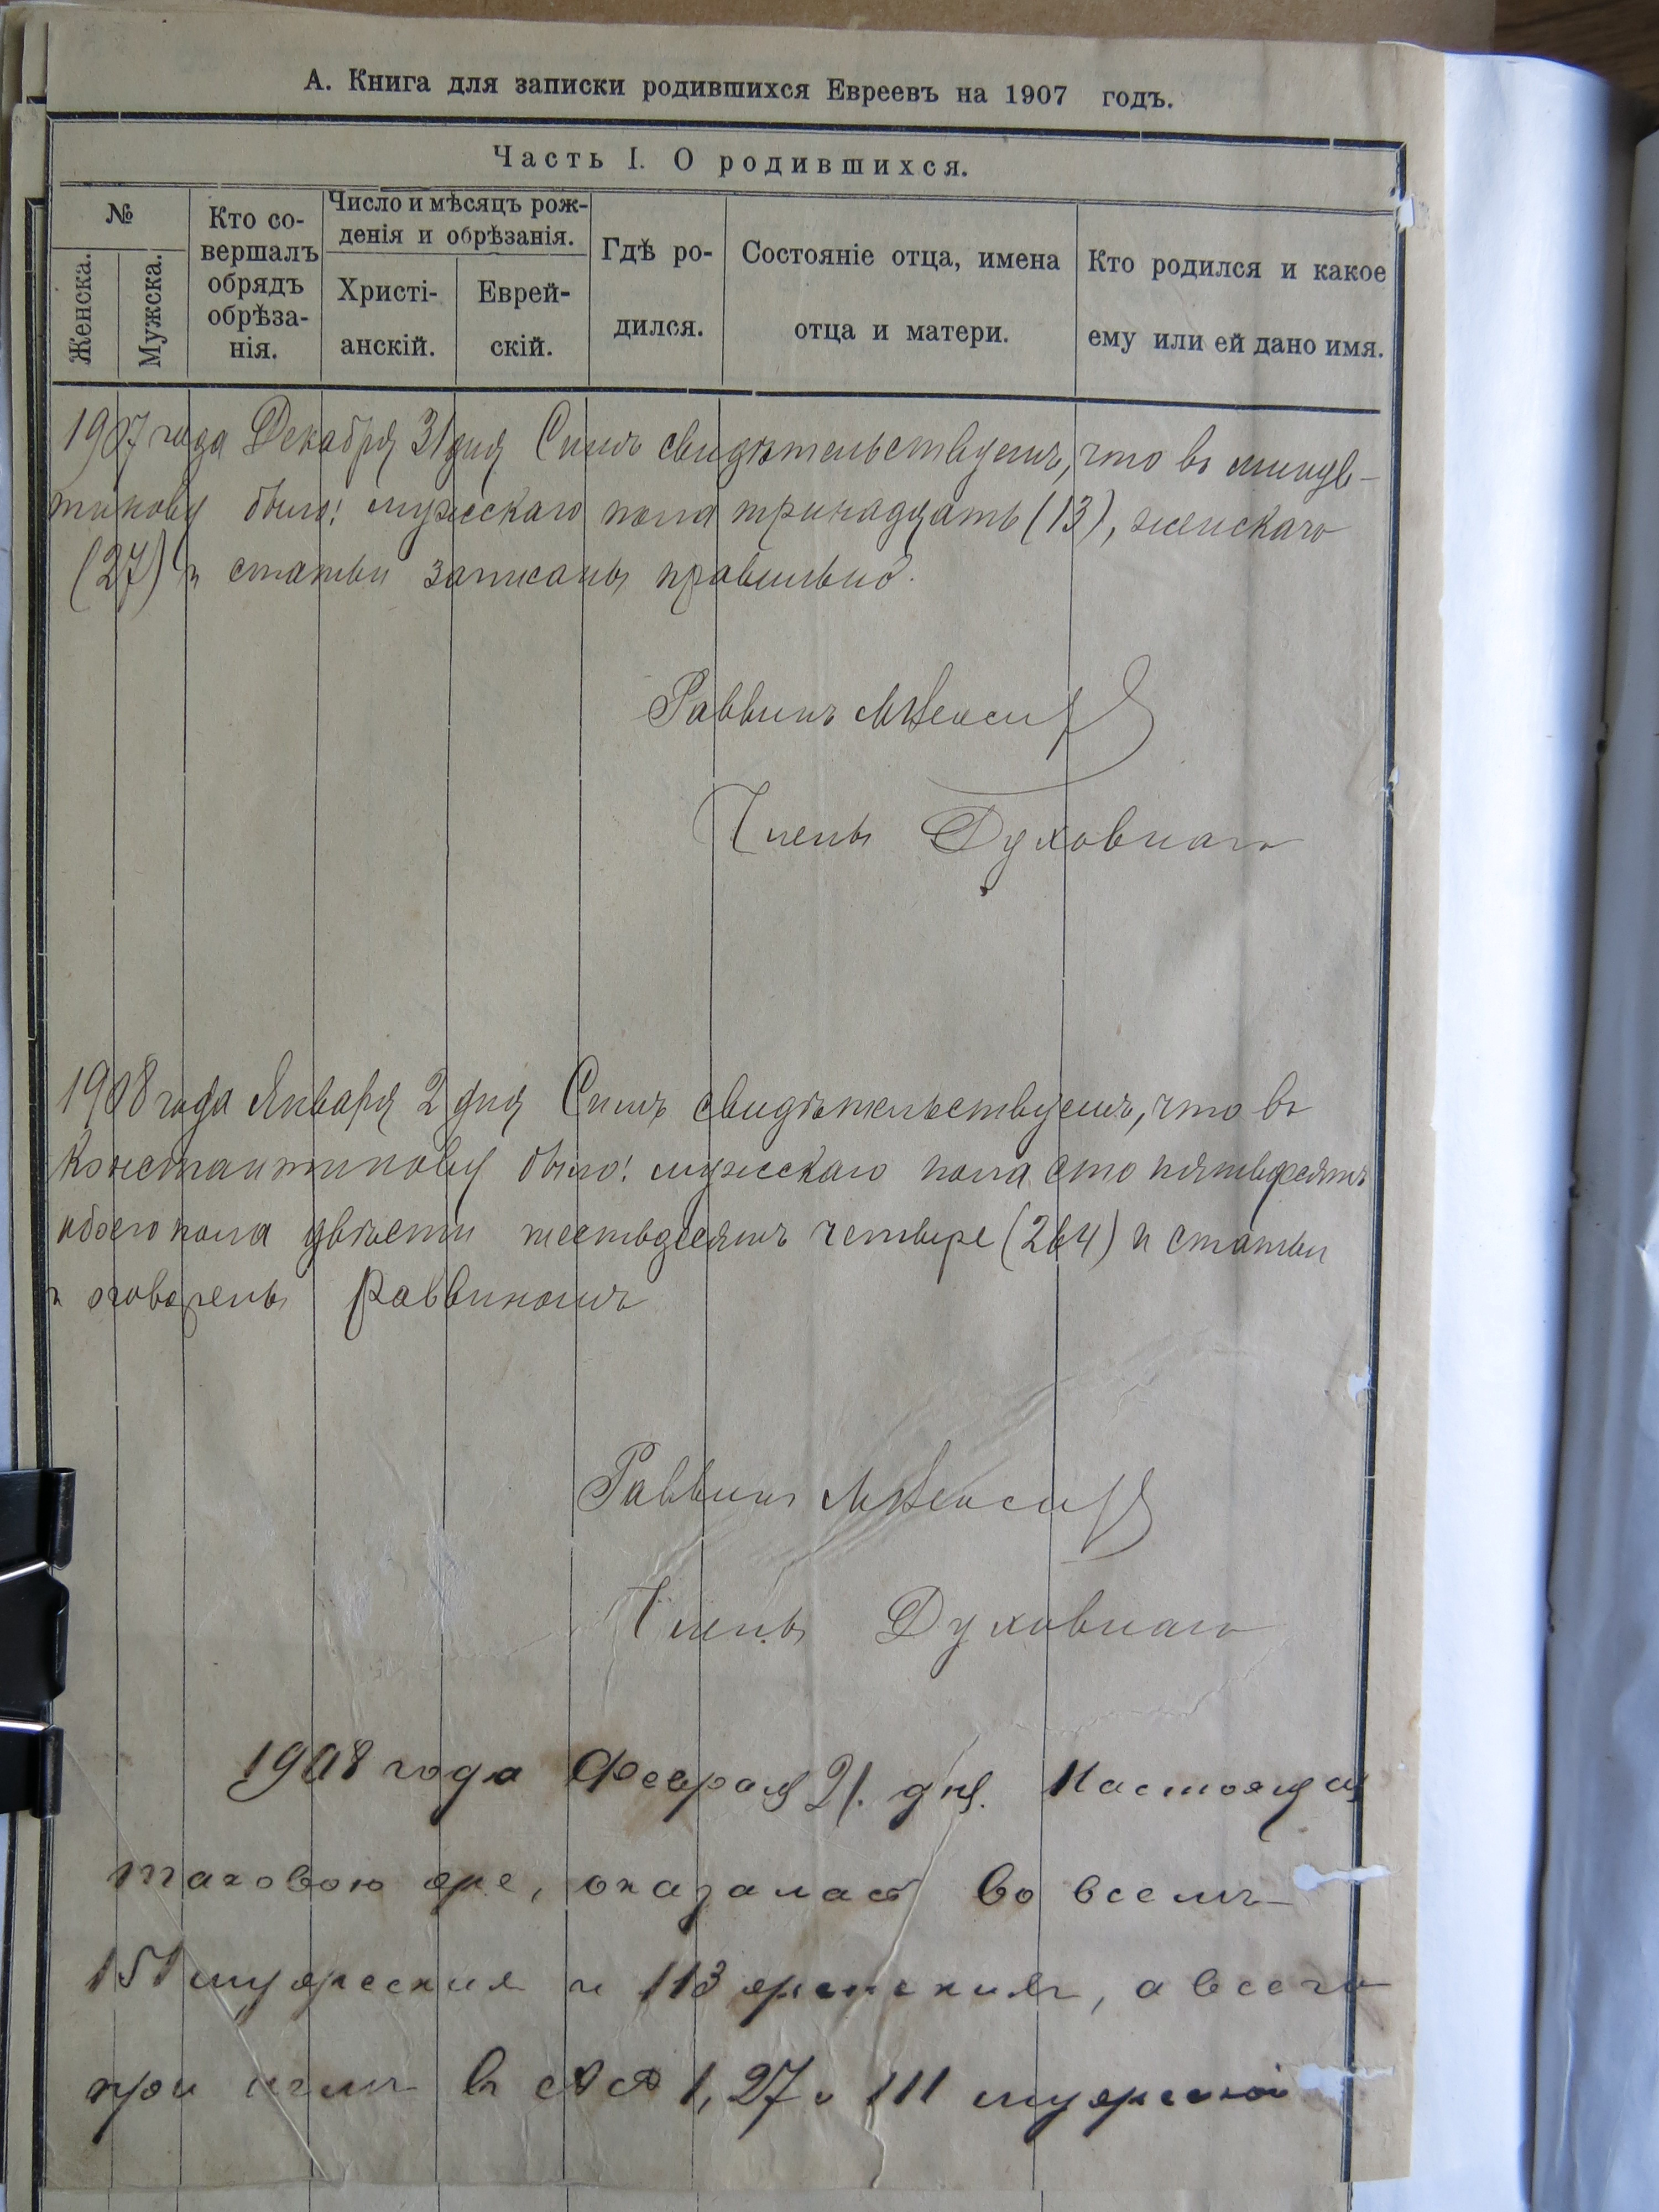 А. Книга для записки родившихся Евреевъ на 1907 годъ.
Часть I. О родившихся.
№
Женска.
Мужска.
Кто со-
вершалъ
обрядъ
обрѣза-
нія.
Число и мѣсяцъ рож-
денія и обрѣзанія.
Христі-
анскій.
Еврей-
скій.
Гдѣ ро-
дился.
Состояніе отца, имена
отца и матери.
Кто родился и какое
ему или ей дано имя.
1907 года Декабря 31 дня Симъ свидѣтельствуемъ, что въ минув-
тинову было: мужескаго пола тринадцать (13), женскаго
(27) и статьи записаны правильно.
Раввинъ
Члены Духовнаго
1908 года Января 2 дня Симъ свидѣтельствуемъ, что въ
Константинову было: мужескаго пола сто пятьдесятъ
обоего пола двѣсти шестьдесятъ четыре (264) и статьи
и оговорены Раввиномъ
Раввинъ
Члены Духовнаго
1908 года Февраля 21. дня. Настоящая
таковою же, оказалась во всемъ
151 мужескія и 113 женскихъ, а всего
при чемъ въ №№ 1, 27 и 111 мужской